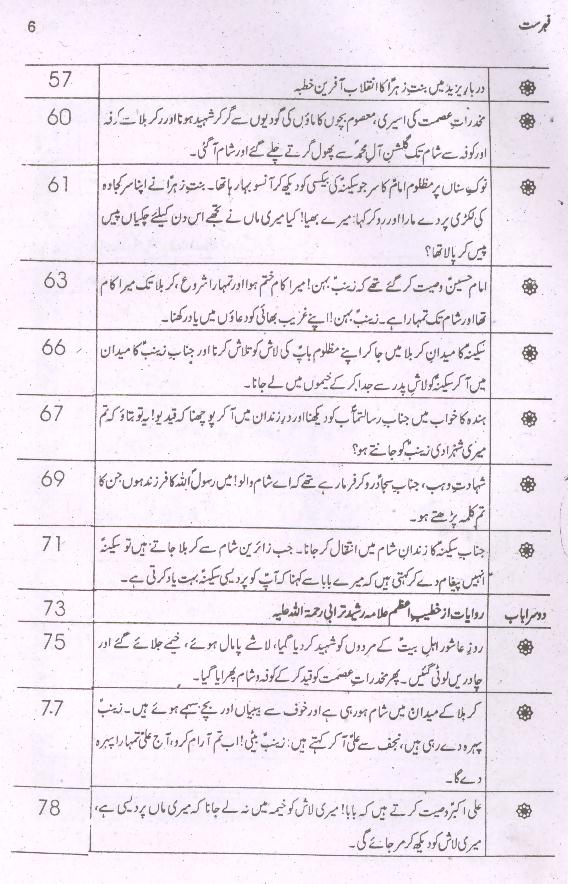 فہرست 6
دربارِ یزید میں بنتِ زہراؑ کا انقلاب آفرین خطبہ 57
مخدراتِ عصمت کی اسیری، معصوم بچوں کا ماؤں کی گودیوں سے گر کر شہید ہونا اور کربلا سے کوفہ 60
اور کوفہ سے شام تک گلشنِ آلِ محمدؐ سے پھول گرتے چلے گئے اور شام آ گئی۔
نوکِ سناں پر مظلوم امامؑ کا سر جو سکینہؑ کی بیکسی کو دیکھ کر آنسو بہا رہا تھا۔ بنتِ زہراؑ نے اپنا سر کجاوہ 61
کی لکڑی پر دے مارا اور رو کر کہا: میرے بھیا! کیا میری ماں نے تجھے اس دن کیلئے چکیاں پیس
پیس کر پالا تھا؟
امام حسینؑ وصیت کر گئے تھے کہ زینبؑ بہن! میرا کام ختم ہوا اور تمہارا شروع، کربلا تک میرا کام 63
تھا اور شام تک تمہارا ہے۔ زینبؑ بہن! اپنے غریب بھائی کو دعاؤں میں یاد رکھنا۔
سکینہؑ کا میدانِ کربلا میں جا کر اپنے مظلوم باپؑ کی لاش کو تلاش کرنا اور جناب زینبؑ کا میدان 66
میں آ کر سکینہؑ کو لاشِ پدر سے جدا کر کے خیموں میں لے جانا۔
ہندہ کا خواب میں جناب رسالتمآبؐ کو دیکھنا اور درِ زندان میں آ کر پوچھنا کہ قیدیو! یہ تو بتاؤ کہ تم 67
میری شہزادی زینبؑ کو جانتے ہو؟
شہادتِ وہب، جناب سجادؑ رو کر فرما رہے تھے کہ اے شام والو! میں رسولؐ اللہ کا فرزند ہوں جن کا 69
تم کلمہ پڑھتے ہو۔
جناب سکینہؑ کا زندانِ شام میں انتقال کر جانا۔ جب زائرین شام سے کربلا جاتے ہیں تو سکینہؑ 71
انہیں پیغام دے کر کہتی ہیں کہ میرے بابا سے کہنا کہ آپؑ کو پردیسی سکینہؑ بہت یاد کرتی ہے۔
دوسرا باب روایات از خطیبِ اعظم علامہ رشید ترابی رحمۃ اللہ علیہ 73
روزِ عاشور اہلِ بیتؑ کے مردوں کو شہید کر دیا گیا، لاشے پامال ہوئے، خیمے جلائے گئے اور 75
چادریں لوٹی گئیں۔ پھر مخدراتِ عصمت کو قید کر کے کوفہ و شام پھرایا گیا۔
کربلا کے میدان میں شام ہو رہی ہے اور خوف سے بیبیاں اور بچے سہمے ہوئے ہیں۔ زینبؑ 77
پہرہ دے رہی ہیں، نجف سے علیؑ آ کر کہتے ہیں: زینبؑ بیٹی! اب تم آرام کرو، آج علیؑ تمہارا پہرہ
دے گا۔
علی اکبرؑ وصیت کرتے ہیں کہ بابا! میری لاش کو خیمہ میں نہ لے جانا کہ میری ماں پردیسی ہے، 78
میری لاش کو دیکھ کر مر جائے گی۔